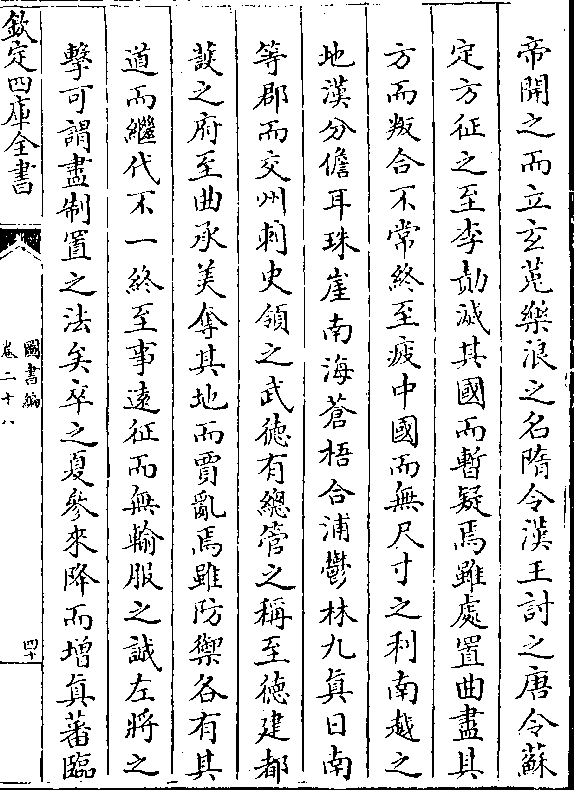 帝開之而立玄菟樂浪之名隋令漢王討之唐令蘇
定方征之至李勣滅其國而暫疑焉雖處置曲盡其
方而叛合不常終至疲中國而無尺寸之利南越之
地漢分儋耳珠崖南海蒼梧合浦鬱林九真日南
等郡而交州刺史領之武徳有總管之稱至徳建都
䕶之府至曲承美奪其地而賈亂焉雖防禦各有其
道而繼代不一終至事逺征而無輸服之誠左將之
擊可謂盡制置之法矣卒之夏參來降而增真蕃臨
欽定四庫全書
圖書編
卷二十八
四十